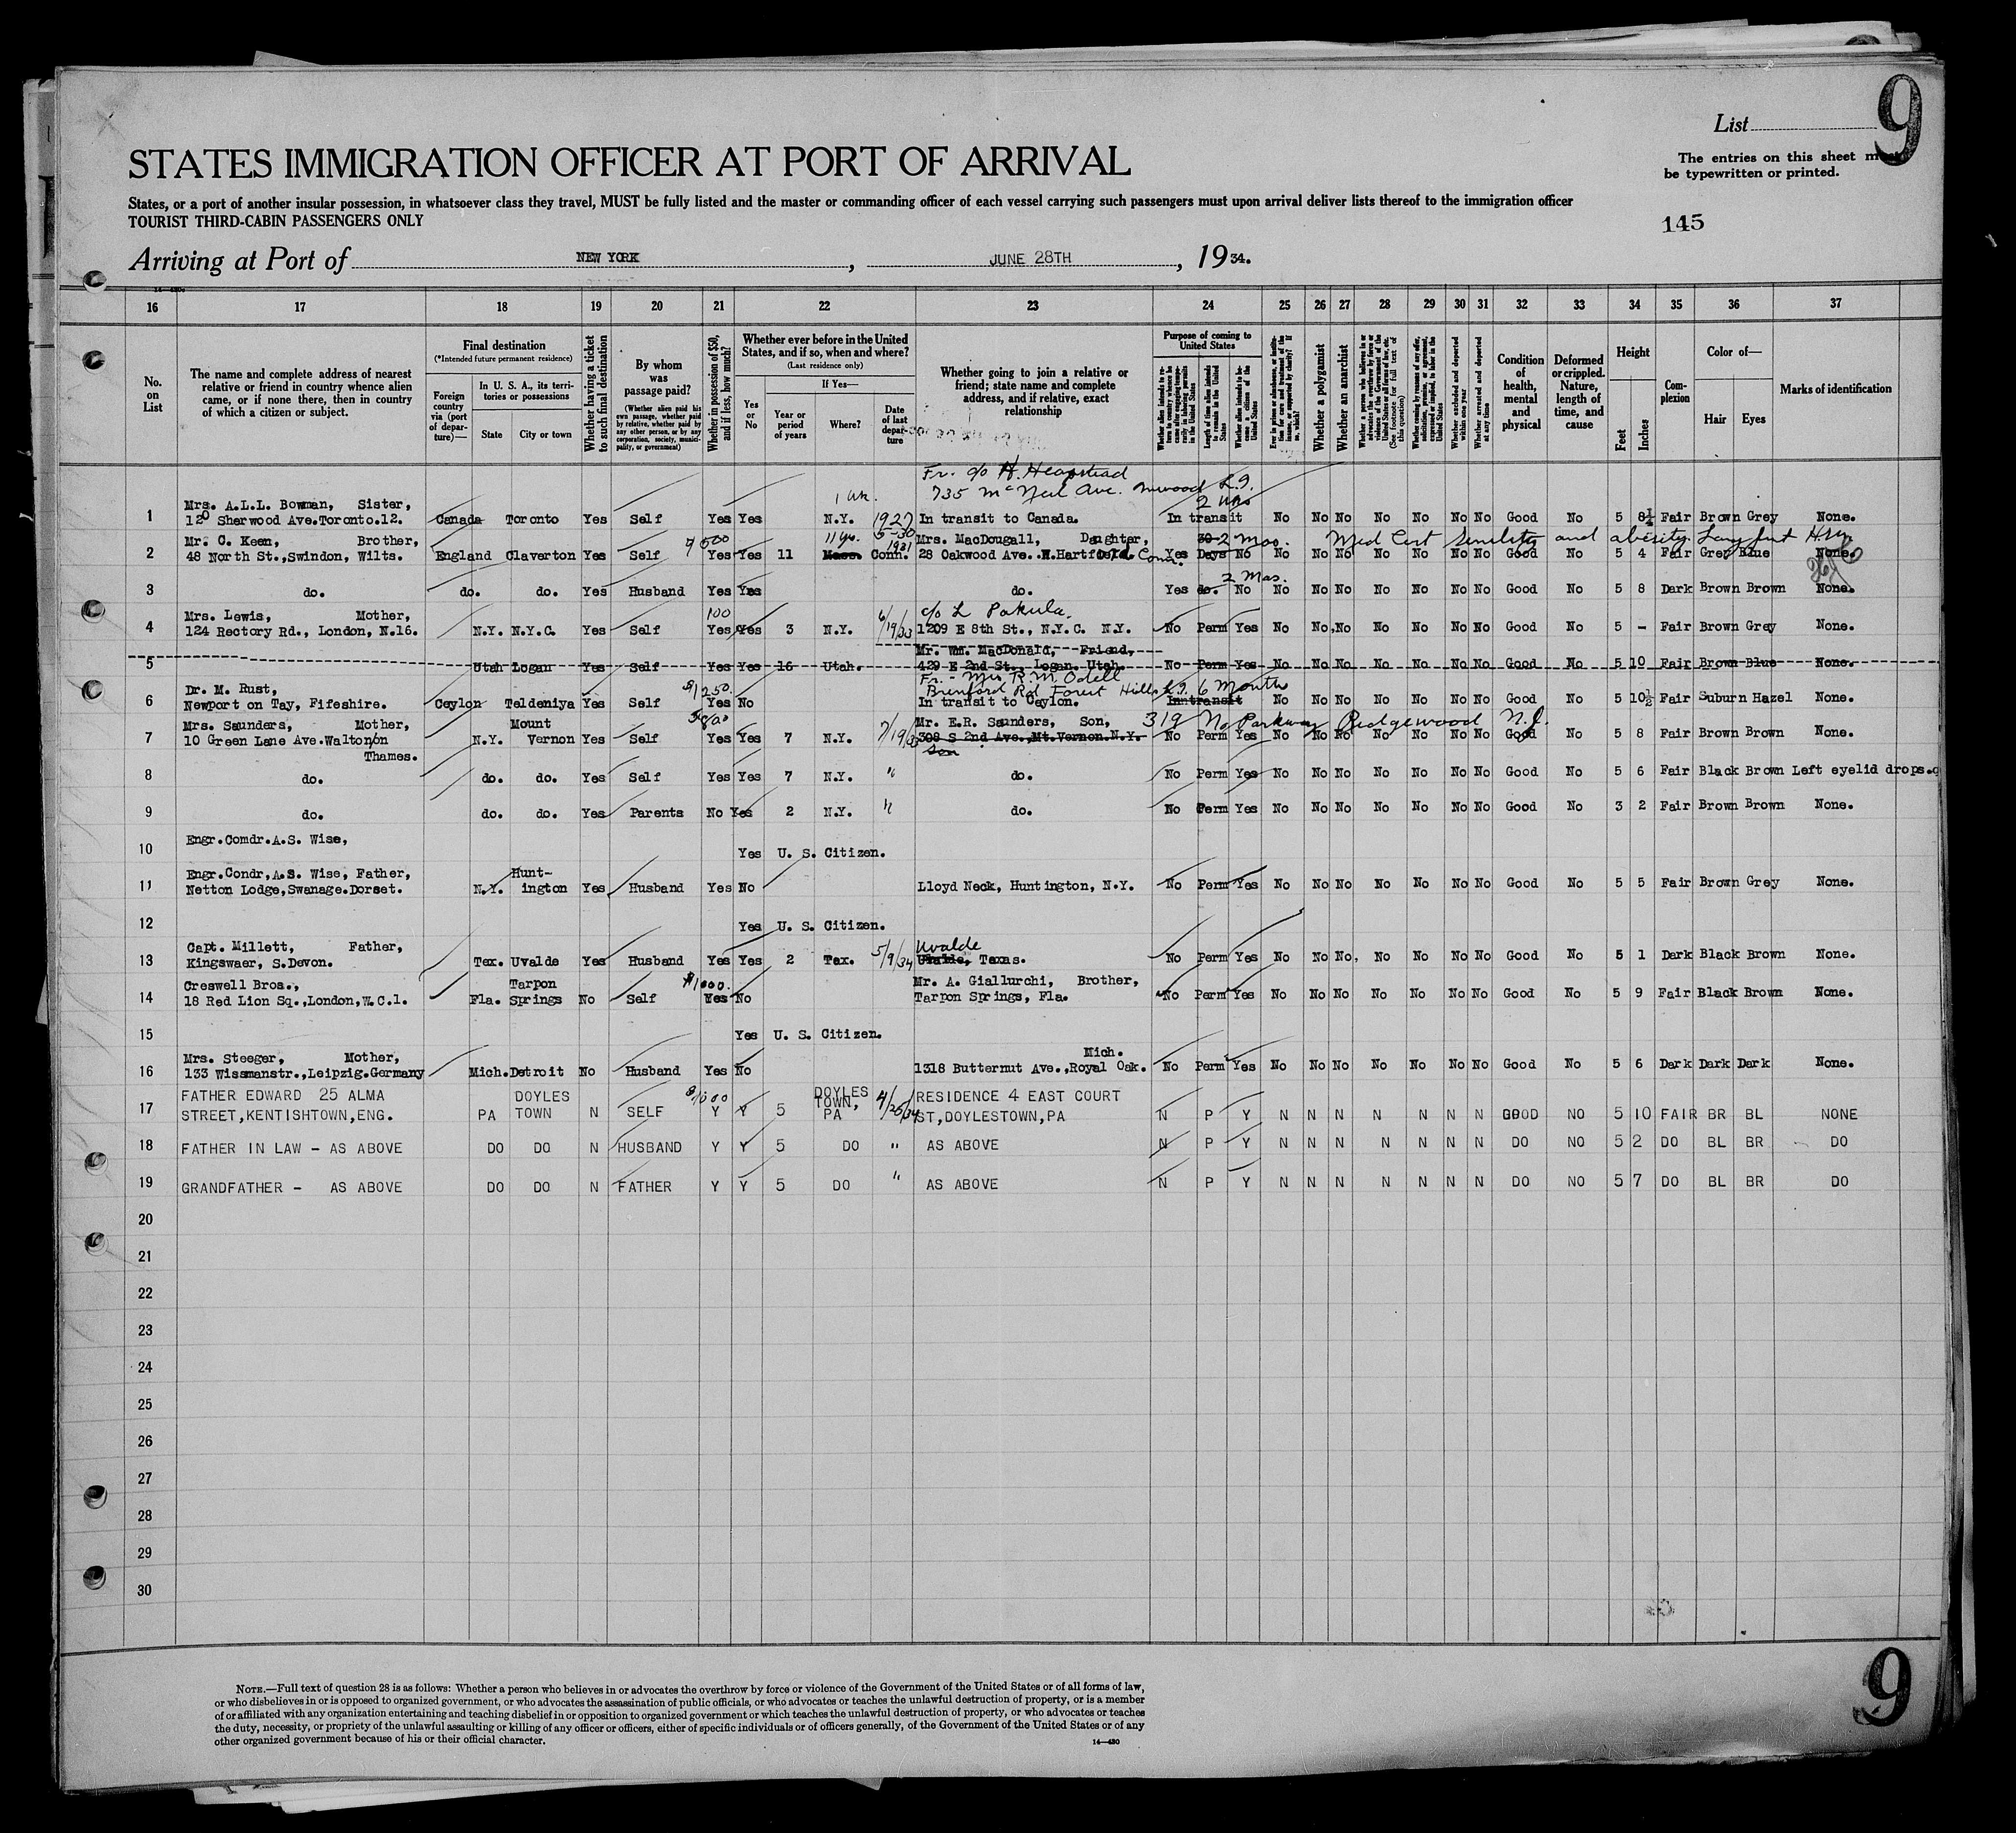 List
9
The entries on this sheet must
be typewritten or printed.
STATES IMMIGRATION OFFICER AT PORT OF ARRIVAL
States, or a port of another insular possession, in whatsoever class they travel, MUST be fully listed and the master or commanding officer of each vessel carrying such passengers must upon arrival deliver lists thereof to the immigration officer
TOURIST THIRD-CABIN PASSENGERS ONLY
145
Arriving at Port of NEW YORK, JUNE 28TH, 1934.
16 17 18 19 20 21 22 23 24 25 26 27 28 29 30 31 32 33 34 35 36 37
No. on List
The name and complete address of nearest relative or friend in country whence alien came, or if none there, then in country of which a citizen or subject.
Final destination
(*Intended future permanent residence)
Foreign country via (port of departure)—
In U. S. A., its territories or possessions
State City or town
Whether having a ticket to such final destination
By whom was passage paid?
(Whether alien paid his own passage, whether paid by relative, whether paid by any other person, or by any corporation, society, municipality, or government)
Whether in possession of $50, and if less, how much?
Whether ever before in the United States, and if so, when and where?
(Last residence only)
Yes or No
If Yes—
Year or period of years
Where?
Date of last departure
Whether going to join a relative or friend; state name and complete address, and if relative, exact relationship
Purpose of coming to United States
Length of time alien intends to remain in the United States
Whether alien intends to become a citizen of the United States
Whether a polygamist
Whether an anarchist
Whether excluded and deported within one year
Whether arrested and deported at any time
Condition of health, mental and physical
Deformed or crippled. Nature, length of time, and cause
Height
Feet Inches
Complexion
Color of—
Hair Eyes
Marks of identification
Fr. c/o H. Heapstead
1 wk. 735 McNeil Ave. Inwood L.I.
Mrs. A.L.L. Bowman, Sister,
1 120 Sherwood Ave.Toronto.12. Canada Toronto Yes Self Yes Yes N.Y. 1927 In transit to Canada. In transit No No No No No No No Good No 5 8½ Fair Brown Grey None.
Mr. C. Keen, Brother, Mrs. MacDougall, Daughter, 2 mos. Med Cert Senility and obesity.
2 48 North St.,Swindon, Wilts. England Claverton Yes Self Yes Yes 11 Mass. Conn. 1931 28 Oakwood Ave. W.Hartford. Conn. Yes Days No No No No No No No No Good No 5 4 Fair Grey Blue None.
2 mos.
3 do. do. do. Yes Husband Yes Yes do. Yes do. No No No No No No No No Good No 5 8 Dark Brown Brown None.
Mrs. Lewis, Mother, 100 c/o L Pakula.
4 124 Rectory Rd., London, N.16. N.Y. N.Y.C. Yes Self Yes Yes 3 N.Y. 6/19/33 1209 E 8th St., N.Y.C. N.Y. No Perm Yes No No No No No No No Good No 5 - Fair Brown Grey None.
Mr. Wm. MacDonald, Friend,
5 Utah Logan Yes Self Yes Yes 16 Utah. 429 E 2nd St., Logan. Utah. No Perm Yes No No No No No No No Good No 5 10 Fair Brown Blue None.
Fr. - Mrs R.M. Odell
Dr. M. Rust, $1250. Brenford Rd Forest Hills L.I. 6 Months
6 Newport on Tay, Fifeshire. Ceylon Teldeniya Yes Self Yes No In transit to Ceylon. In transit No No No No No No No Good No 5 10½ Fair Suburn Hazel None.
Mrs. Saunders, Mother, Mount Mr. E.R. Saunders, Son, 319 No Parkway Ridgewood N.J.
7 10 Green Lane Ave.Walton/on N.Y. Vernon Yes Self Yes Yes 7 N.Y. 7/19/33 308 S 2nd Ave.,Mt.Vernon.N.Y. No Perm Yes No No No No No No No Good No 5 8 Fair Brown Brown None.
Thames. Son
8 do. do. do. Yes Self Yes Yes 7 N.Y. " do. No Perm Yes No No No No No No No Good No 5 6 Fair Black Brown Left eyelid drops.
9 do. do. do. Yes Parents No Yes 2 N.Y. " do. No Perm Yes No No No No No No No Good No 3 2 Fair Brown Brown None.
Engr.Comdr.A.S. Wise,
10 Yes U. S. Citizen.
Engr.Condr,A.S. Wise, Father, Hunt-
11 Netton Lodge,Swanage.Dorset. N.Y. ington Yes Husband Yes No Lloyd Neck, Huntington, N.Y. No Perm Yes No No No No No No No Good No 5 5 Fair Brown Grey None.
12 Yes U. S. Citizen.
Capt. Millett, Father, Uvalde
13 Kingswaer, S.Devon. Tex. Uvalde Yes Husband Yes Yes 2 Tax. 5/9/34 Texas. No Perm Yes No No No No No No No Good No 5 1 Dark Black Brown None.
Creswell Bros., Tarpon $1000. Mr. A. Giallurchi, Brother,
14 18 Red Lion Sq.,London,W.C.1. Fla. Springs No Self Yes No Tarpon Springs, Fla. No Perm Yes No No No No No No No Good No 5 9 Fair Black Brown None.
15 Yes U. S. Citizen.
Mrs. Steeger, Mother, Mich.
16 133 Wissmanstr.,Leipzig.Germany Mich. Detroit No Husband Yes No 1318 Butternut Ave.,Royal Oak. No Perm Yes No No No No No No No Good No 5 6 Dark Dark Dark None.
FATHER EDWARD 25 ALMA DOYLES DOYLES RESIDENCE 4 EAST COURT
17 STREET,KENTISHTOWN,ENG. PA TOWN N SELF Y Y 5 TOWN, PA 4/25/34 ST,DOYLESTOWN,PA N P Y N N N N N N N GOOD NO 5 10 FAIR BR BL NONE
18 FATHER IN LAW - AS ABOVE DO DO N HUSBAND Y Y 5 DO " AS ABOVE N P Y N N N N N N N DO NO 5 2 DO BL BR DO
19 GRANDFATHER - AS ABOVE DO DO N FATHER Y Y 5 DO " AS ABOVE N P Y N N N N N N N DO NO 5 7 DO BL BR DO
20
21
22
23
24
25
26
27
28
29
30
NOTE.—Full text of question 28 is as follows: Whether a person who believes in or advocates the overthrow by force or violence of the Government of the United States or of all forms of law,
or who disbelieves in or is opposed to organized government, or who advocates the assassination of public officials, or who advocates or teaches the unlawful destruction of property, or is a member
of or affiliated with any organization entertaining and teaching disbelief in or opposition to organized government or which teaches the unlawful destruction of property, or who advocates or teaches
the duty, necessity, or propriety of the unlawful assaulting or killing of any officer or officers, either of specific individuals or of officers generally, of the Government of the United States or of any
other organized government because of his or their official character.
14—430
9